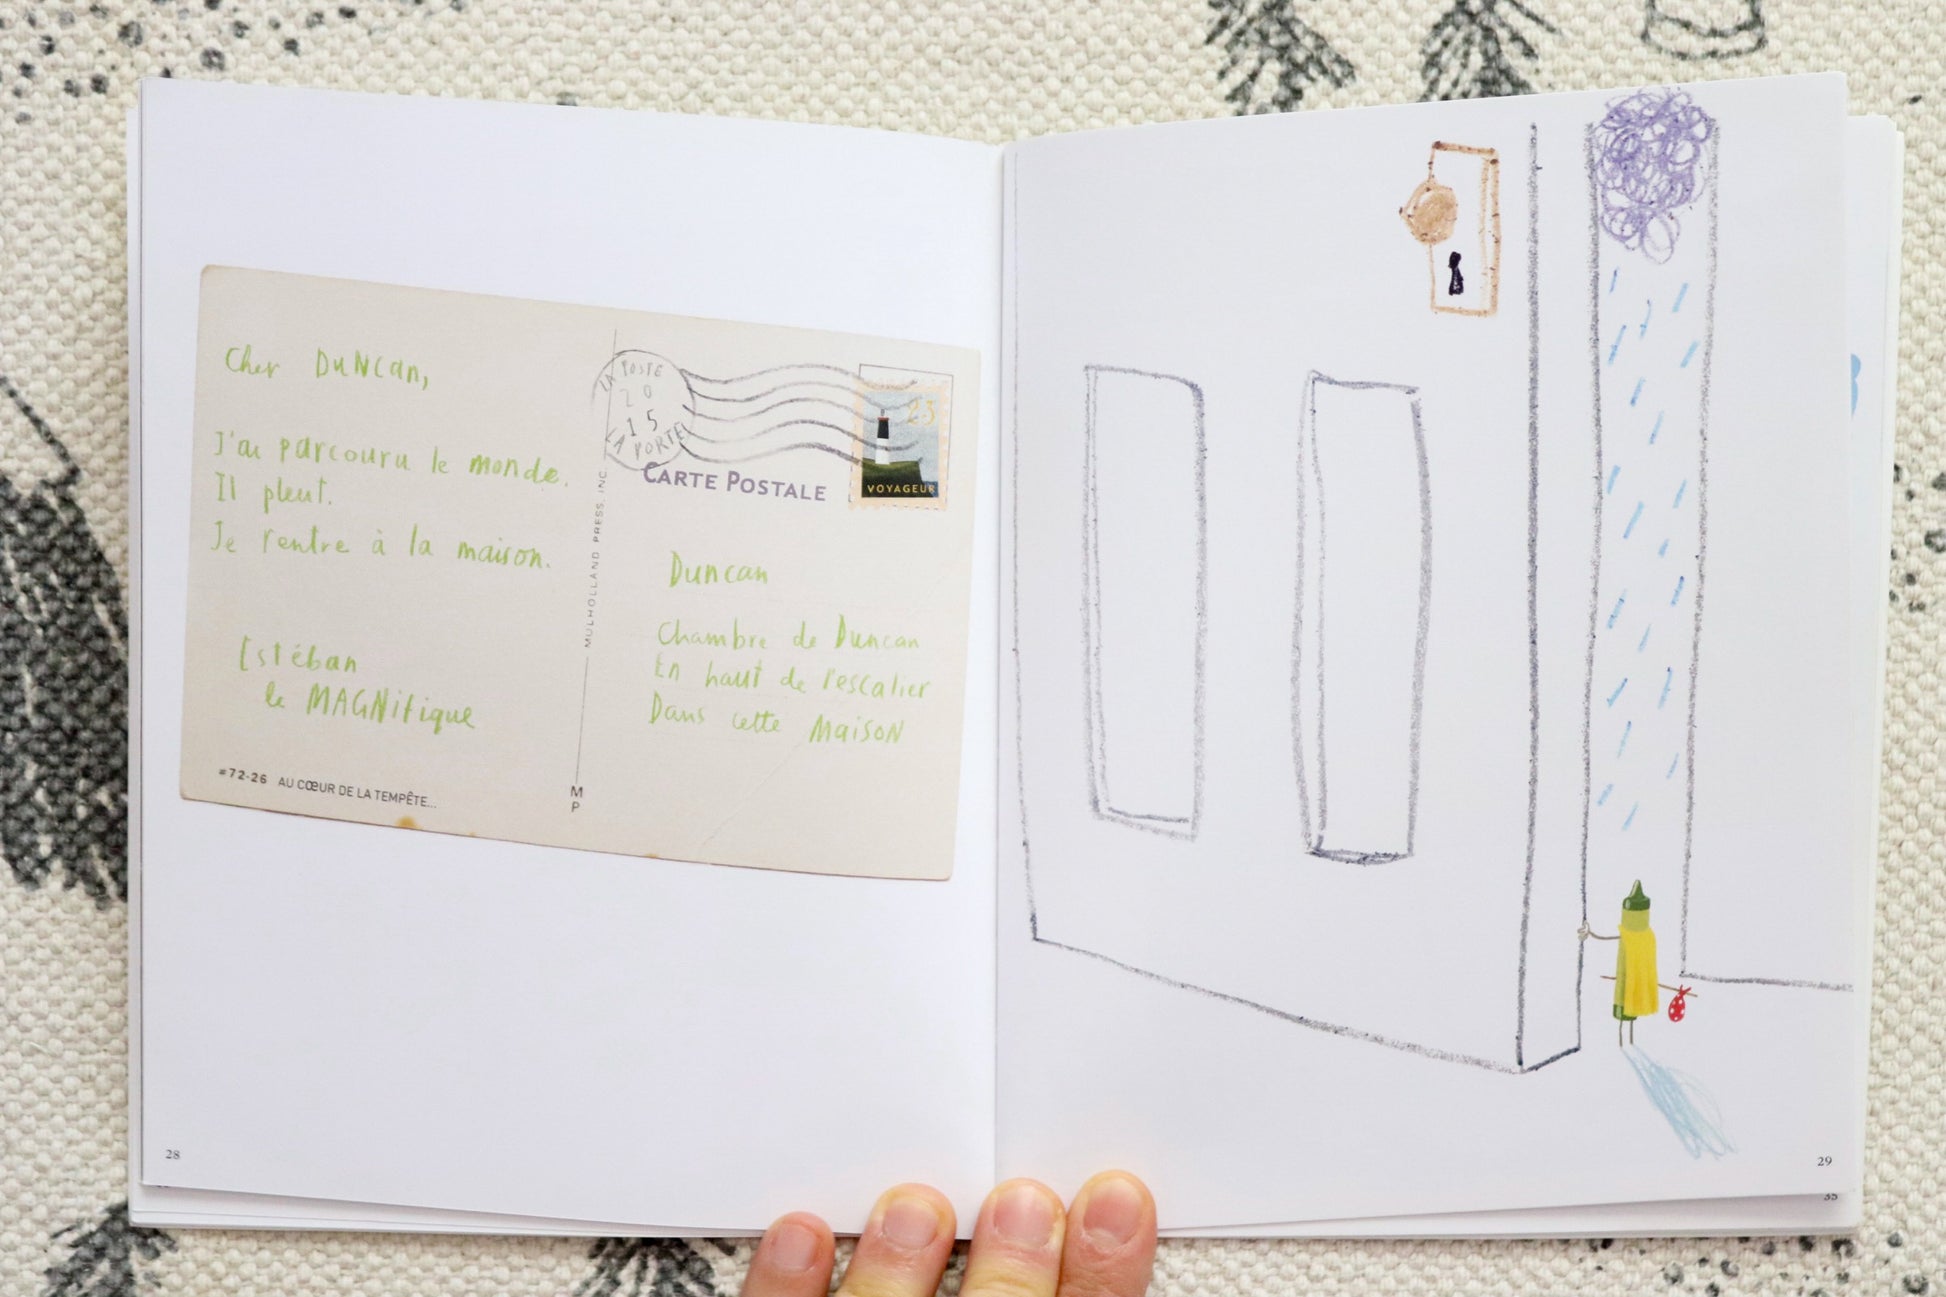 Cher Duncan,
J'ai parcouru le monde.
Il pleut.
Je rentre à la maison.
Estéban
le MAGNifique
#72-26 AU CŒUR DE LA TEMPÊTE...
MULHOLLAND PRESS, INC.
M
P
LA POSTE
20
15
LA PORTE
23
VOYAGEUR
CARTE POSTALE
Duncan
Chambre de Duncan
En haut de l'escalier
Dans cette MAiSON
28
29
35